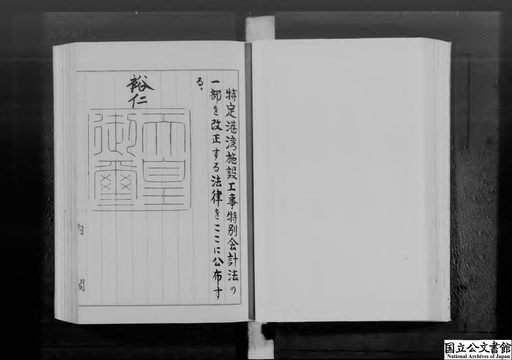 特定港湾施設工事特別会計法の
一部を改正する法律をここに公布す
る。
裕仁
天皇
御璽
内閣
国立公文書館
National Archives of Japan